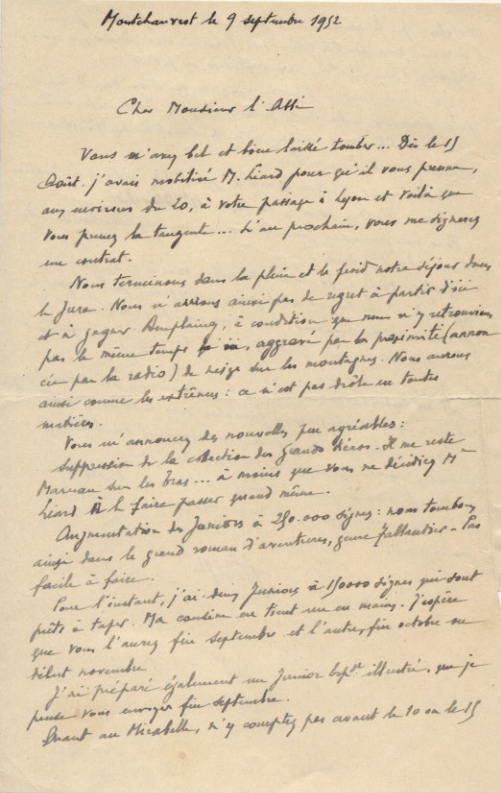 Montchauvest le 9 septembre 1952
Cher Monsieur l'Abbé
Vous m'avez bel et bien laissé tomber... Dès le 15
Août, j'avais mobilisé M. Liard pour qu'il vous prenne,
aux environs du 20, à votre passage à Lyon et voilà que
vous prenez la tangente... L'an prochain, vous me signerez
un contrat.
Nous terminons dans la pluie et le froid notre séjour dans
le Jura. Nous n'aurons ainsi pas de regret à partir d'ici
et à gagner, à condition que nous n'y retrouvions
pas le même temps, aggravé par la proximité (annon
cée par la radio) de neige sur les montagnes. Nous aurons
ainsi connu les extrêmes : ce n'est pas drôle en toutes
matières.
Vous m'annoncez des nouvelles peu agréables :
Suppression de la collection des Grands Héros. Il me reste
Marceau sur les bras... à moins que vous ne décidiez Mr
Liard à le faire passer quand même.
Augmentation des Juniors à 250.000 signes : nous tombons
ainsi dans le grand roman d'aventures, genre Tallandier. Pas
facile à faire.
Pour l'instant, j'ai deux Juniors à 150000 signes qui sont
prêts à taper. Ma cousine en tient un en mains. J'espère
que vous l'aurez fin septembre et l'autre, fin octobre ou
début novembre.
J'ai préparé également un Junior illustré, que je
pense vous envoyer fin septembre.
Quant au Mirabelle, n'y comptez pas avant le 10 ou le 15